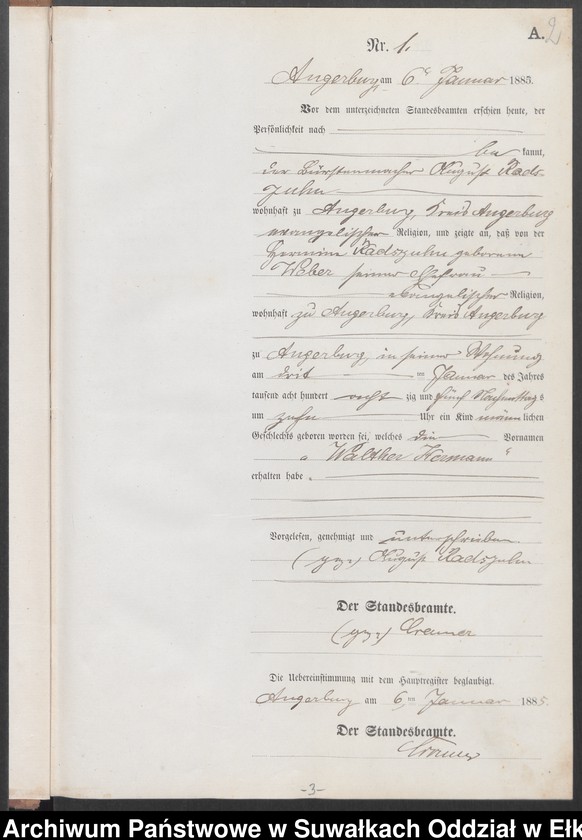 A. 2
Nr. 1.
Angerburg, am 6ten Januar 1885.
Vor dem unterzeichneten Standesbeamten erschien heute, der
Persönlichkeit nach
be kannt,
der Bürstenmacher August Rads-
zuhn
wohnhaft zu Angerburg, Kreis Angerburg
evangelischer Religion, und zeigte an, daß von der
Hermine Radszuhn geborene
Weber seiner Ehefrau
evangelischer Religion,
wohnhaft zu Angerburg, Kreis Angerburg
zu Angerburg, in seiner Wohnung
am drit ten Januar des Jahres
tausend acht hundert acht zig und fünf Nachmittags
um zehn Uhr ein Kind männlichen
Geschlechts geboren worden sei, welches die Vornamen
" Walther Hermann "
erhalten habe.
Vorgelesen, genehmigt und unterschrieben
(gez.) August Radszuhn
Der Standesbeamte.
(gez.) Cramer
Die Uebereinstimmung mit dem Hauptregister beglaubigt.
Angerburg am 6ten Januar 1885.
Der Standesbeamte.
Cramer
-3-
Archiwum Państwowe w Suwałkach Oddział w Ełk